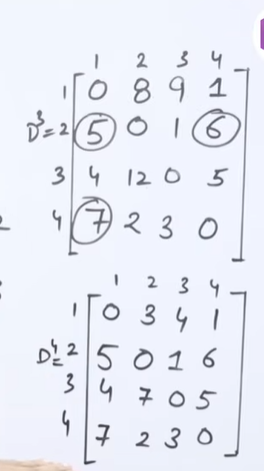 1 2 3 4
1 0 8 9 1
D³= 2 5 0 1 6
3 4 12 0 5
4 7 2 3 0
1 2 3 4
1 0 3 4 1
D⁴= 2 5 0 1 6
3 4 7 0 5
4 7 2 3 0